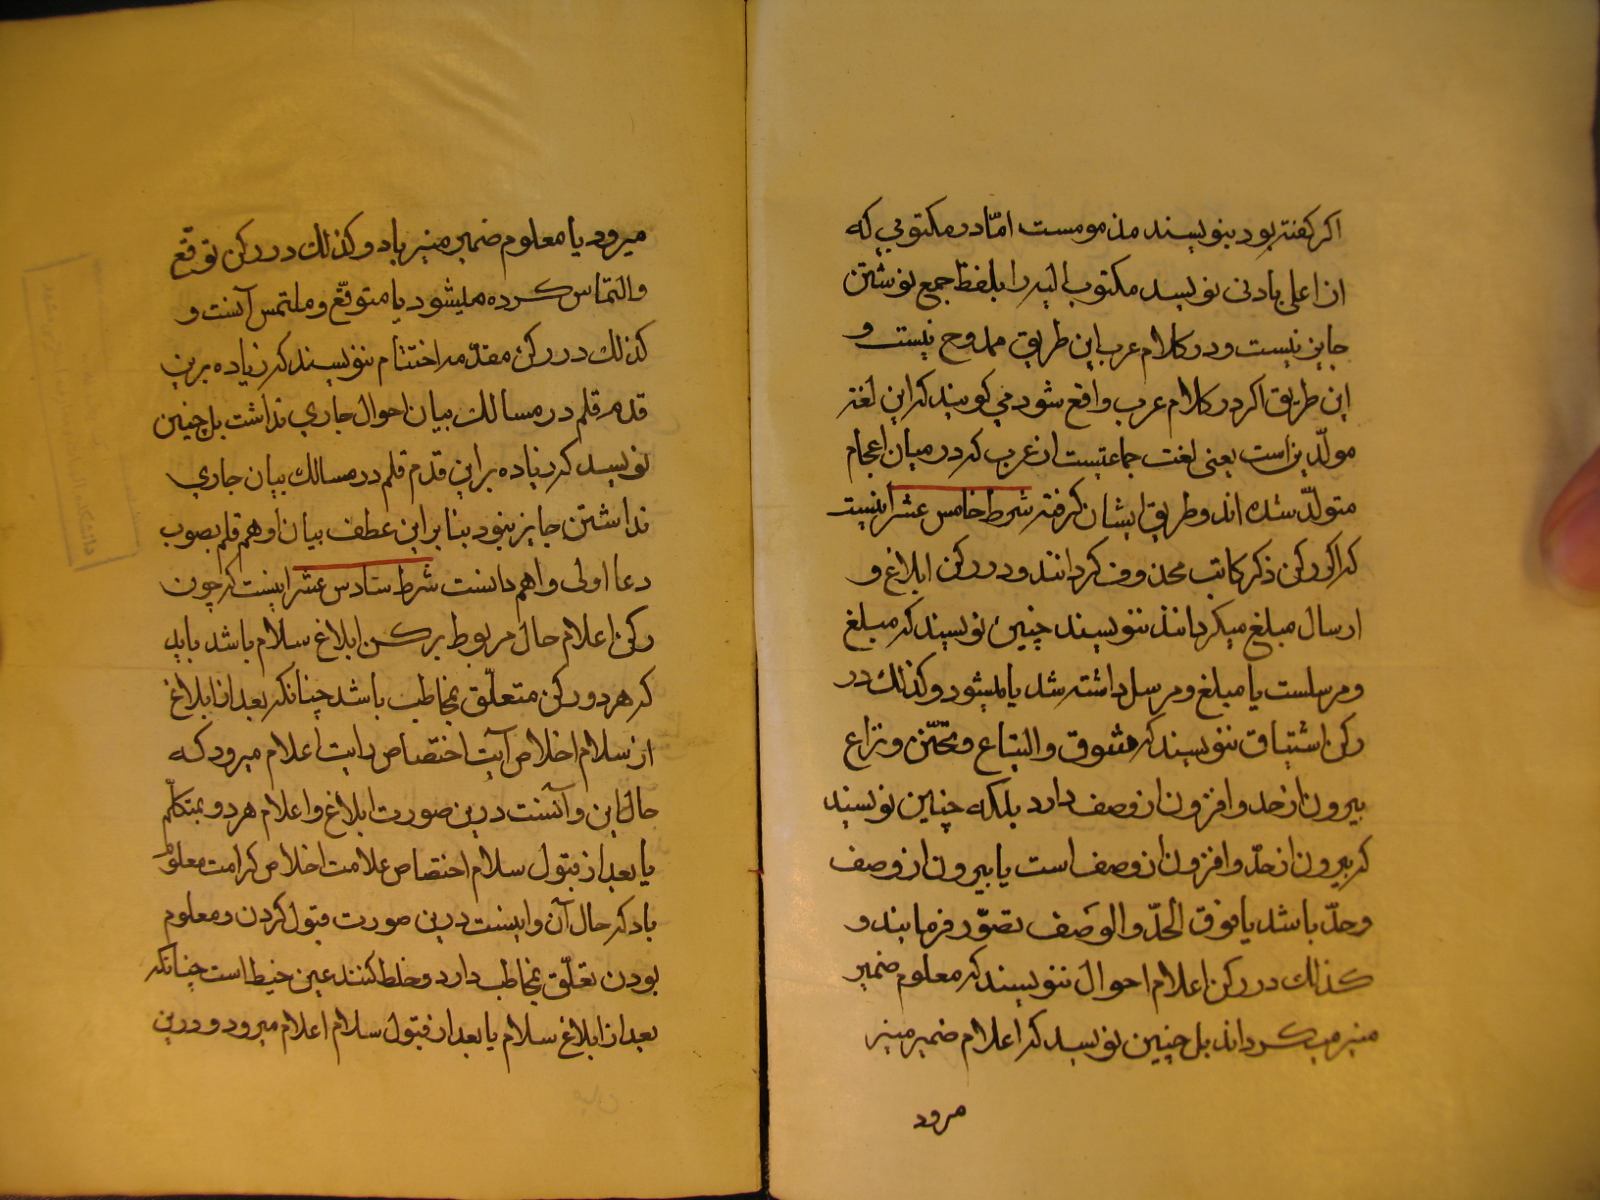 اکر کفته بود بنویسند مذمومست امّا در مکتوبی که
از اعلی بادنی نویسد مکتوب الیه را بلفظ جمع نوشتن
جایز نیست و در کلام عرب این طریق ممدوح نیست و
این طریق اکر در کلام عرب واقع شود می کویند که این لغة
مولّدین است یعنی لغت جماعتیست از عرب که در میان اعجام
متولّد شده اند و طریق ایشان کرفته شرط خامس عشر اینست
که اکر رکن ذکر کاتب محذوف کردانند و در رکن ابلاغ و
ارسال مبلغ میکردانند ننویسند چنین نویسند که مبلغ
و مرسلست یا مبلغ و مرسل داشته شد یا میشود و کذلک در
رکن اشتیاق ننویسند که شوق و التیاع و تحنّن و نزاع
بیرون از حد و افزون از وصف دارد بلکه چنین نویسند
که بیرون از حدّ و افزون از وصف است یا بیرون از وصف
و حدّ باشد یا فوق الحدّ و الوصف تصوّر فرمایند و
کذلک در رکن اعلام احوال ننویسند که معلوم ضمیر
منیر می کرداند بل چنین نویسد که اعلام ضمیر منیر
مرود
میرود یا معلوم ضمیر منیر باد و کذلک در رکن توقّع
و التماس کرده میشود یا متوقّع و ملتمس آنست و
کذلک در رکن مقدّمه اختتام ننویسند که زیاده برین
قدم قلم در مسالک بیان احوال جاری نداشت بل چنین
نویسد که زیاده بر این قدم قلم در مسالک بیان جاری
نداشتن جایز نبود بنا براین عطف بیان او هم قلم بصوب
دعا اولی و اهم دانست شرط سادس عشر اینست که چون
رکن اعلام حال مربوط برکن ابلاغ سلام باشد باید
که هر دو رکن متعلّق بمخاطب باشد چنانکه بعد از ابلاغ
از سلام اخلاص آیت اختصاص رایت اعلام میرود که
حال این و آنست درین صورت ابلاغ و اعلام هر دو بمتکلّم
یا بعد از قبول سلام اختصاص علامت اخلاص کرامت معلوم
باد که حال آن و اینست درین صورت قبول کردن و معلوم
بودن تعلّق بمخاطب دارد و خلط کنند عین خبط است چنانکه
بعد از ابلاغ سلام یا بعد از قبول سلام اعلام میرود و درین